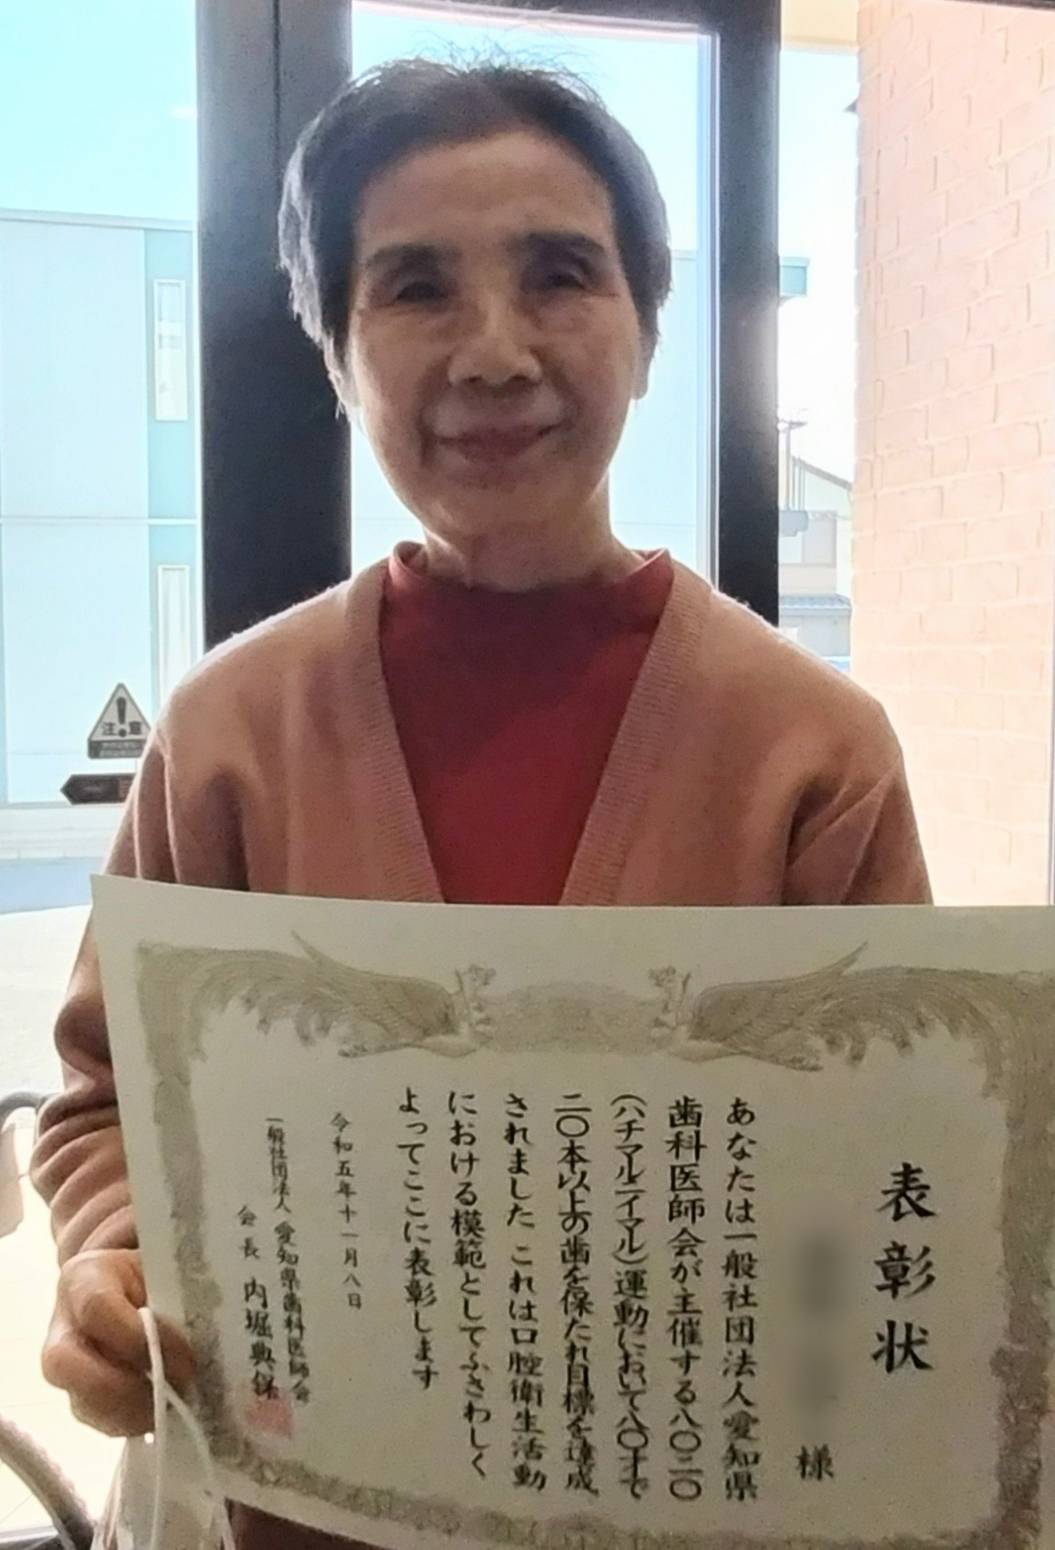 表彰状
様
あなたは一般社団法人愛知県
歯科医師会が主催する八〇二〇
(ハチマルニイマル)運動において八〇才で
二〇本以上の歯を保たれ目標を達成
されました これは口腔衛生活動
における模範としてふさわしく
よってここに表彰します
令和五年十一月八日
一般社団法人 愛知県歯科医師会
会長 内堀典保
注意